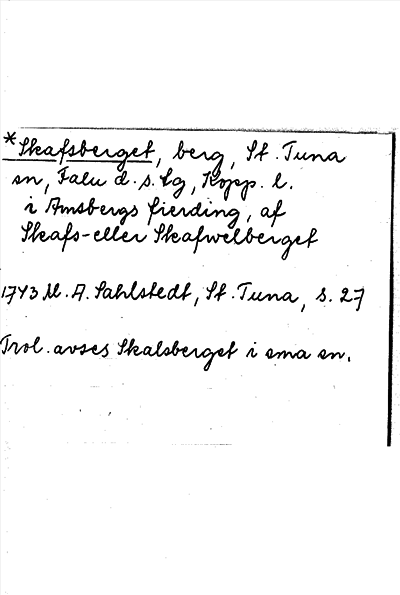 *Skafsberget, berg, St. Tuna
sn, Falu d. s. tg, Kopp. l.
i Amsbergs fierding, af
Skafs- eller Skafwelberget
1743 M. A. Sahlstedt, St. Tuna, s. 27
Trol. avses Skalsberget i sma sn.